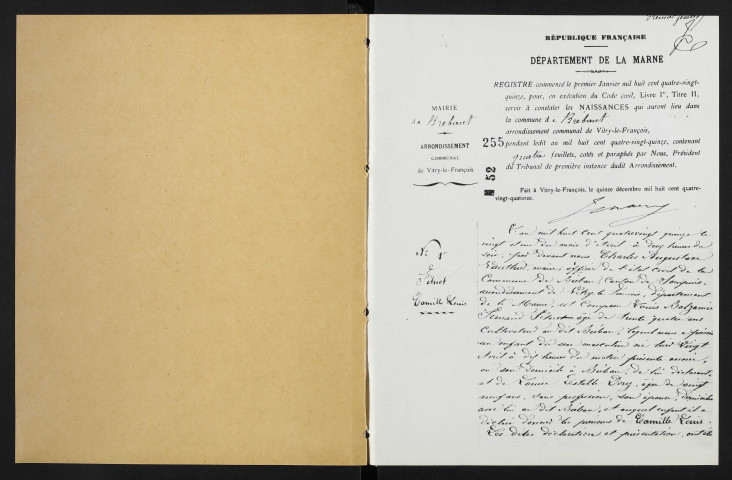 Premier feuillet
RÉPUBLIQUE FRANÇAISE
DÉPARTEMENT DE LA MARNE
REGISTRE commencé le premier Janvier mil huit cent quatre-vingt-
quinze, pour, en exécution du Code civil, Livre Ier, Titre II,
servir à constater les NAISSANCES qui auront lieu dans
la commune de Brébant
arrondissement communal de Vitry-le-François,
pendant ledit an mil huit cent quatre-vingt-quinze, contenant
quatre feuillets, cotés et paraphés par Nous, Président
du Tribunal de première instance dudit Arrondissement.
Fait à Vitry-le-François, le quinze décembre mil huit cent quatre-
vingt-quatorze.
MAIRIE
de Brébant
ARRONDISSEMENT
COMMUNAL
de Vitry-le-François
255
52
N° 1
Camille Louis
L'an mil huit cent quatre vingt quinze le
vingt et un du mois d'Avril à deux heures du
soir, par devant nous Charles Augustave
maire officier de l'état civil de la
Commune de Bréban, Canton de Sompuis,
arrondissement de Vitry le François, département
de la Marne, est comparu Louis
Fernand âgé de trente quatre ans
Cultivateur au dit Bréban, lequel nous a présenté
un enfant du sexe masculin né hier vingt
Avril à dix heures du matin présente année,
en son domicile à Bréban, de lui déclarant,
et de Louise Estelle âgée de vingt
neuf ans, sans profession, son épouse, domiciliée
avec lui au dit Bréban, et auquel enfant il a
déclaré donner les prénoms de Camille Louis.
Les dites déclaration et présentation ont été